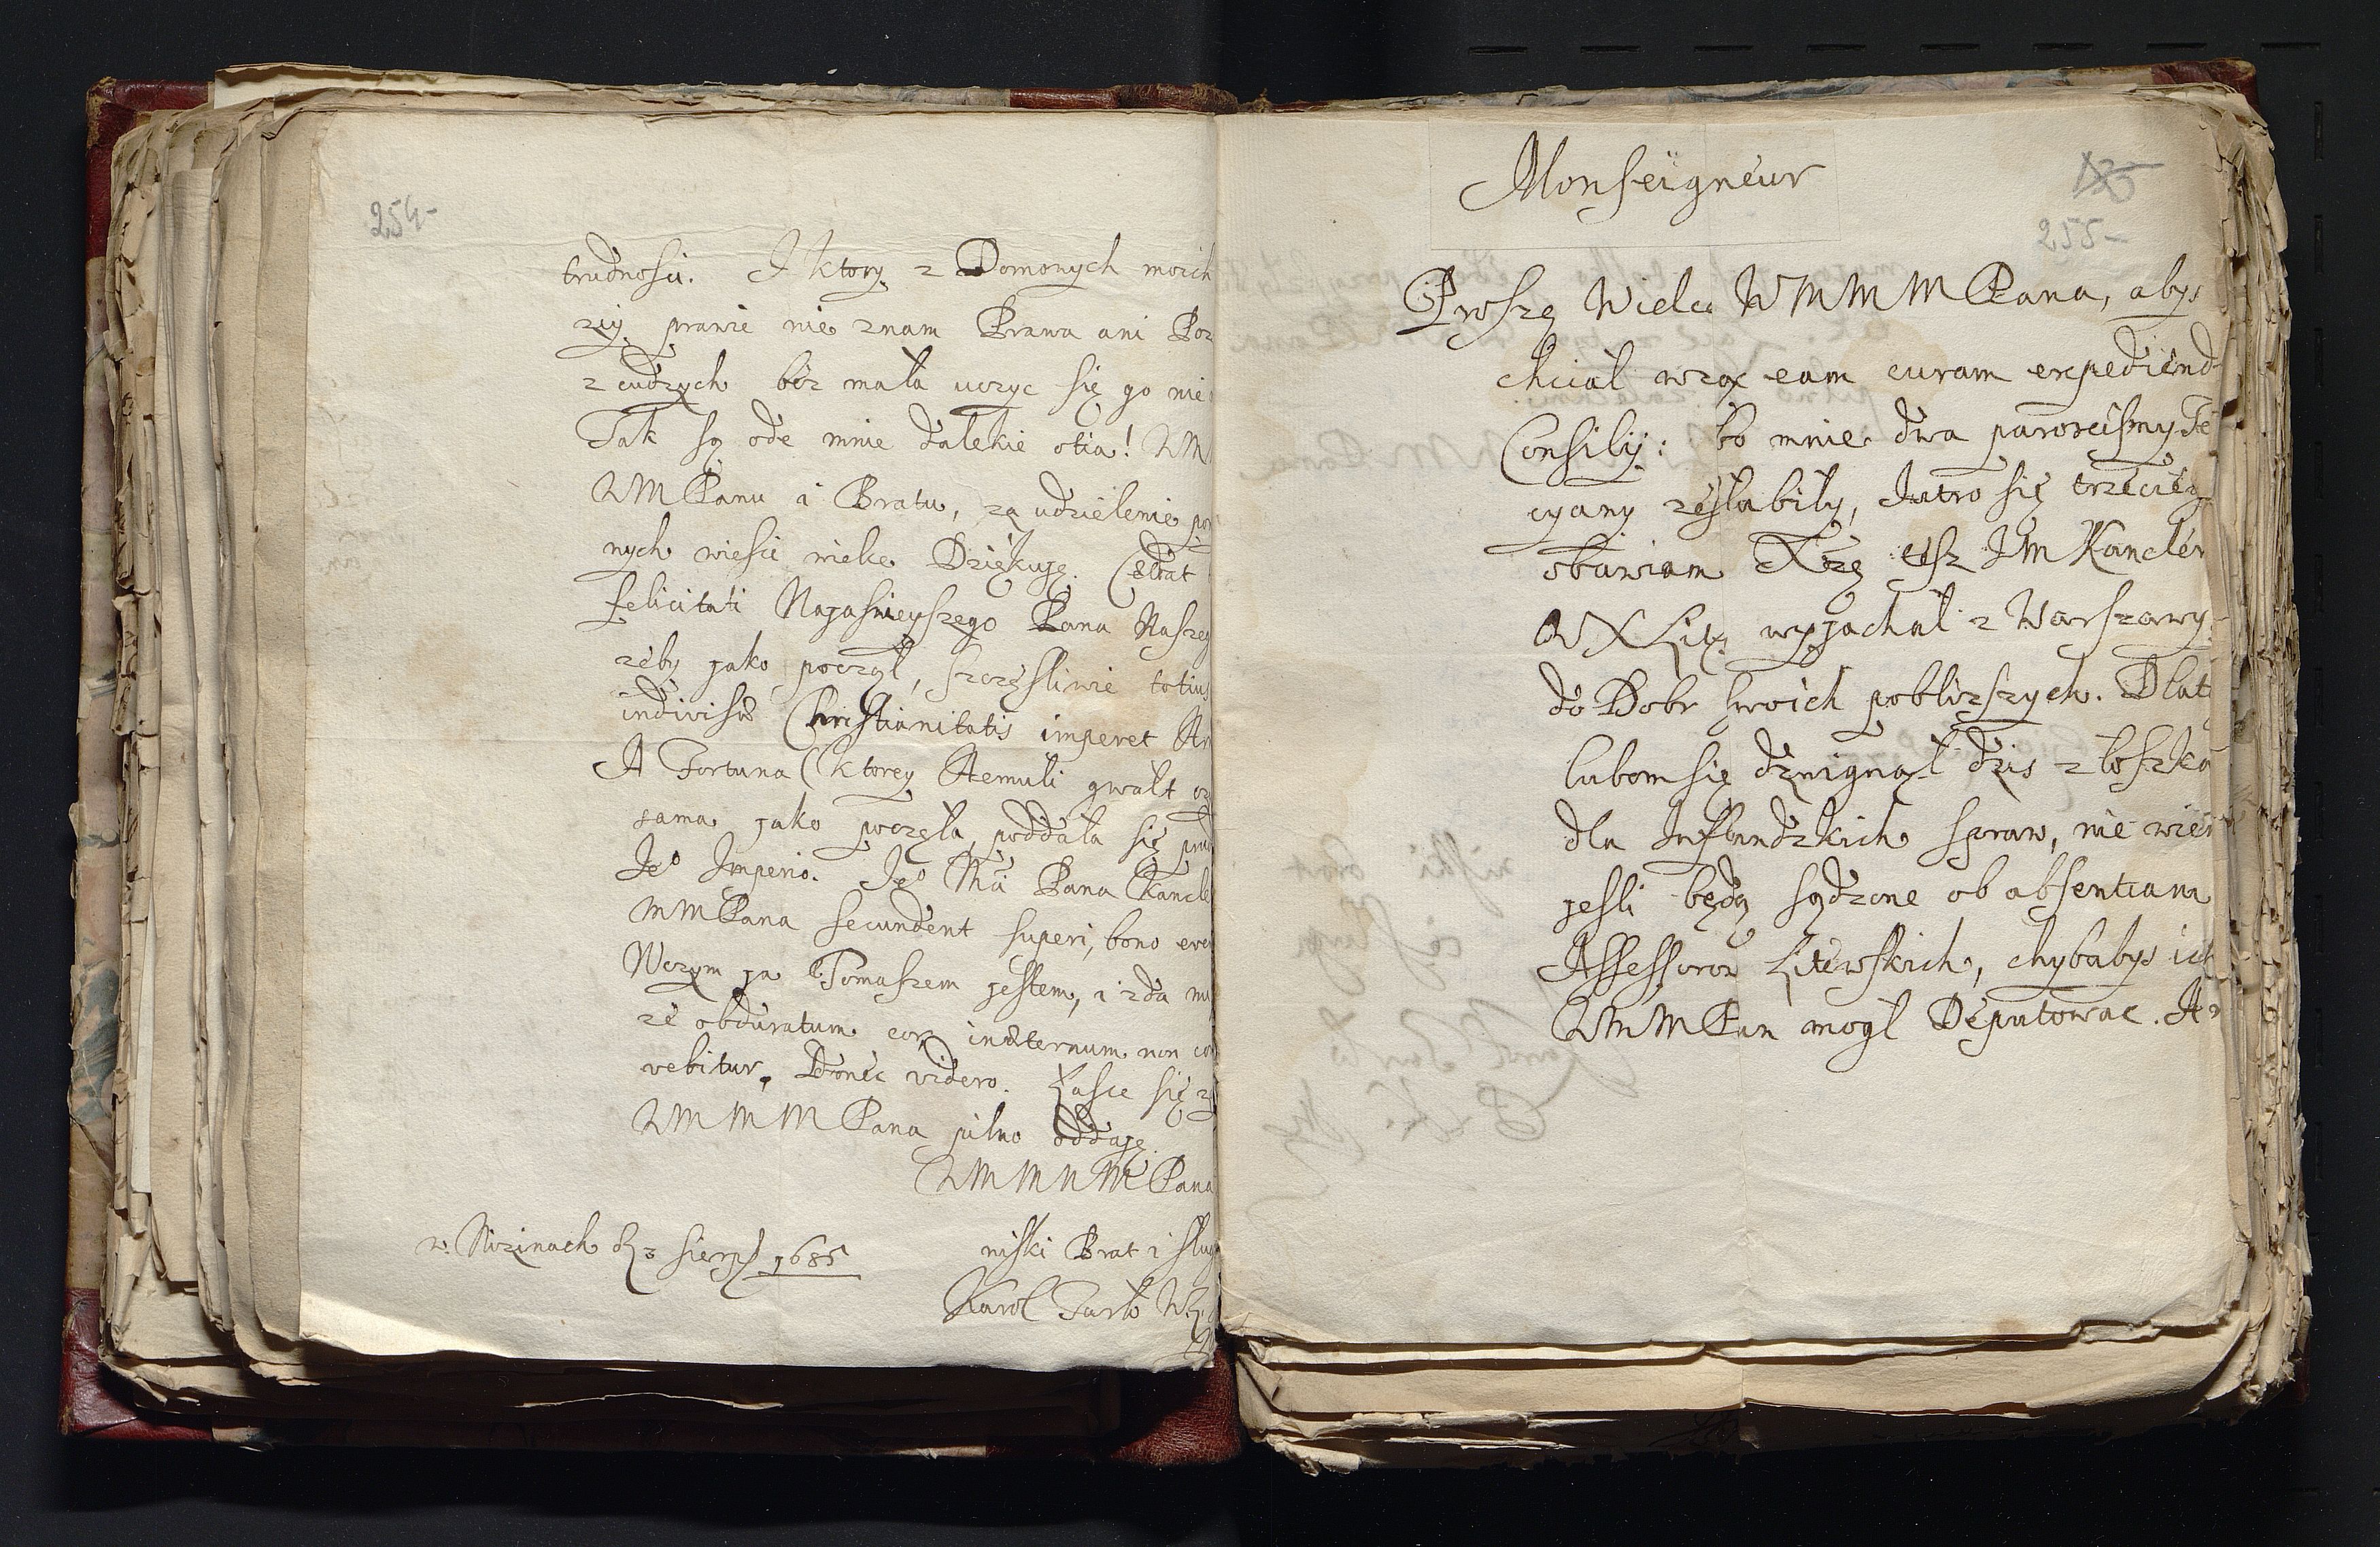 254-
trudnosci. I ktory z Domowych moich
rzy prawie nie znam Prawa ani
z cudzych bez mała uczyc się go nie
Tak są ode mnie dalekie otia! WM
WMPanu i Bratu, za udzielenie
nych wiesci wielce Dziękuię. Cedat
felicitati Najasnieyszego Pana Naszeg
zeby jako począł, szczęsliwie totius
indivisæ Christianitatis imperet
A Fortuna (ktorey Aemuli gwałt
sama jako poczęła, poddała się
Jeo Imperio. Jeo Mci Pana Kancle
MMPana secundent superi, bono
Wczym ja Tomaszem jestem, i zda mi
ze obduratum cor inæternum non
vebitur, Donec videro. Łasce się
WMMMPana pilno oddaję.
WMMMMPana
w. Nizinach d 2 Sierp 1685
niski Brat i sług
Karol Tarło
Monseigneur
255-
Proszę Wielce WMMMPana, abys
chciał wząc eam curam expediend
Consilij: bo mnie dwa paroxismy
cyany zesłabiły, Jutro się trzecieg
obawiam Xżę JM Kancler
WXLitt. wyjachał z Warszawy
do Dobr swoich poblizszych. Dlat
lubom się dzwignął dzis z łoszka
dla Inflandzkich spraw, nie wiem
jesli będą sądzone ob absentiam
Assessorow Litewskich, chybabys ich
WMMPan mogł Deputowac. A